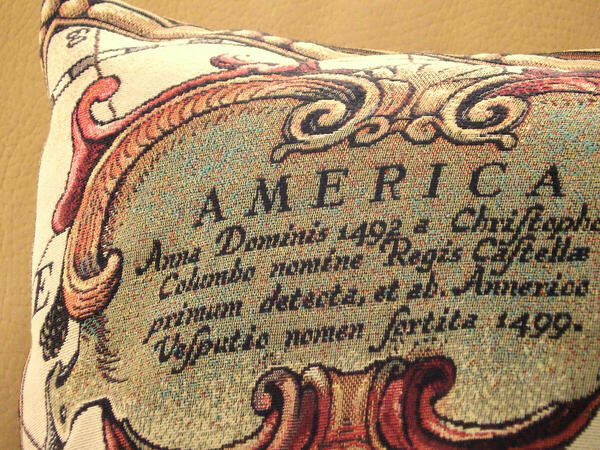 AMERICA
Anna Dominis 1492 a Chriſtopho
Colombo nomine Regis Caſtellæ
primum detecta, et ab. Annerico
Veſputio nomen ſortita 1499.
E
8